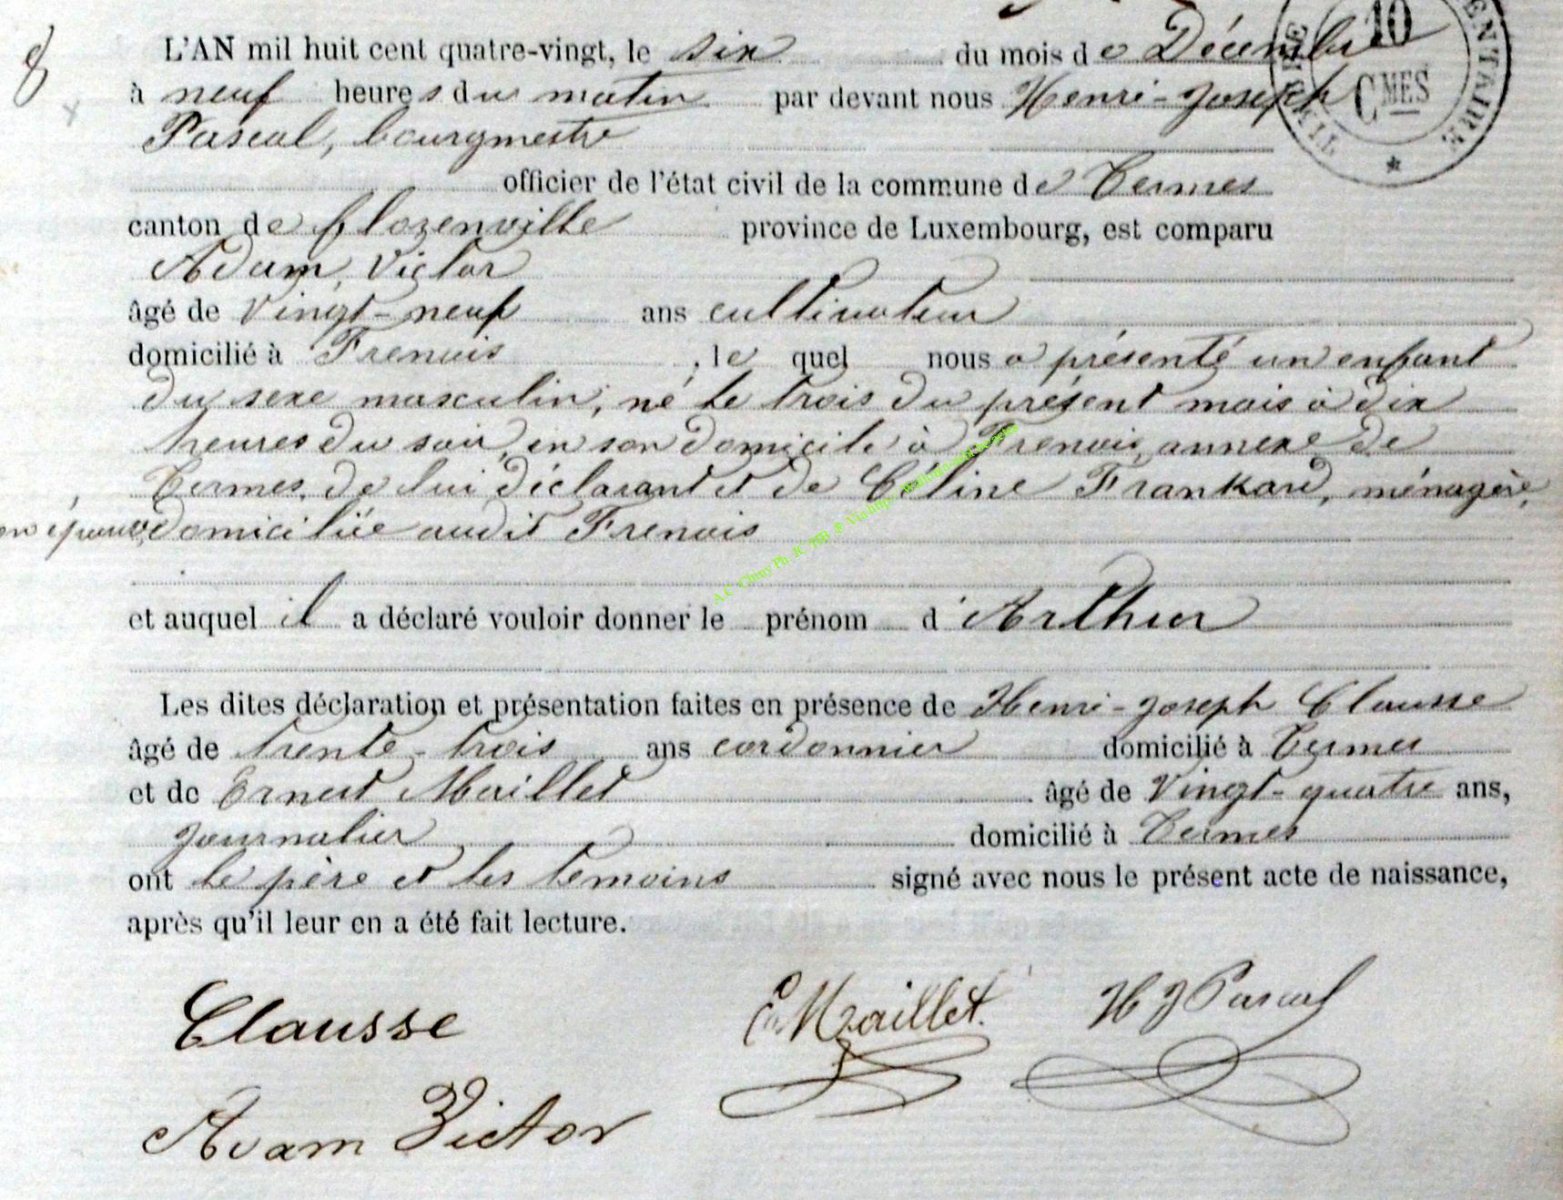 8
L'AN mil huit cent quatre-vingt, le six du mois de Décembre
à neuf heures du matin par devant nous Henri-Joseph
Pascal, bourgmestre
officier de l'état civil de la commune de Termes
canton de florenville province de Luxembourg, est comparu
Adam, Victor
âgé de vingt-neuf ans cultivateur
domicilié à Frenois, lequel nous a présenté un enfant
du sexe masculin, né le trois du présent mois à dix
heures du soir, en son domicile à Frenois, annexe de
Termes, de lui déclarant et de Céline Frankard, ménagère,
son épouse, domiciliée audit Frenois
et auquel il a déclaré vouloir donner le prénom d'Arthur
Les dites déclaration et présentation faites en présence de Henri-Joseph Clausse
âgé de trente-trois ans cordonnier domicilié à Termes
et de Ernest Maillet âgé de vingt-quatre ans,
journalier domicilié à Termes
ont le père et les témoins signé avec nous le présent acte de naissance,
après qu'il leur en a été fait lecture.
Clausse E. Maillet. H J Pascal
Adam Victor
10
CMES